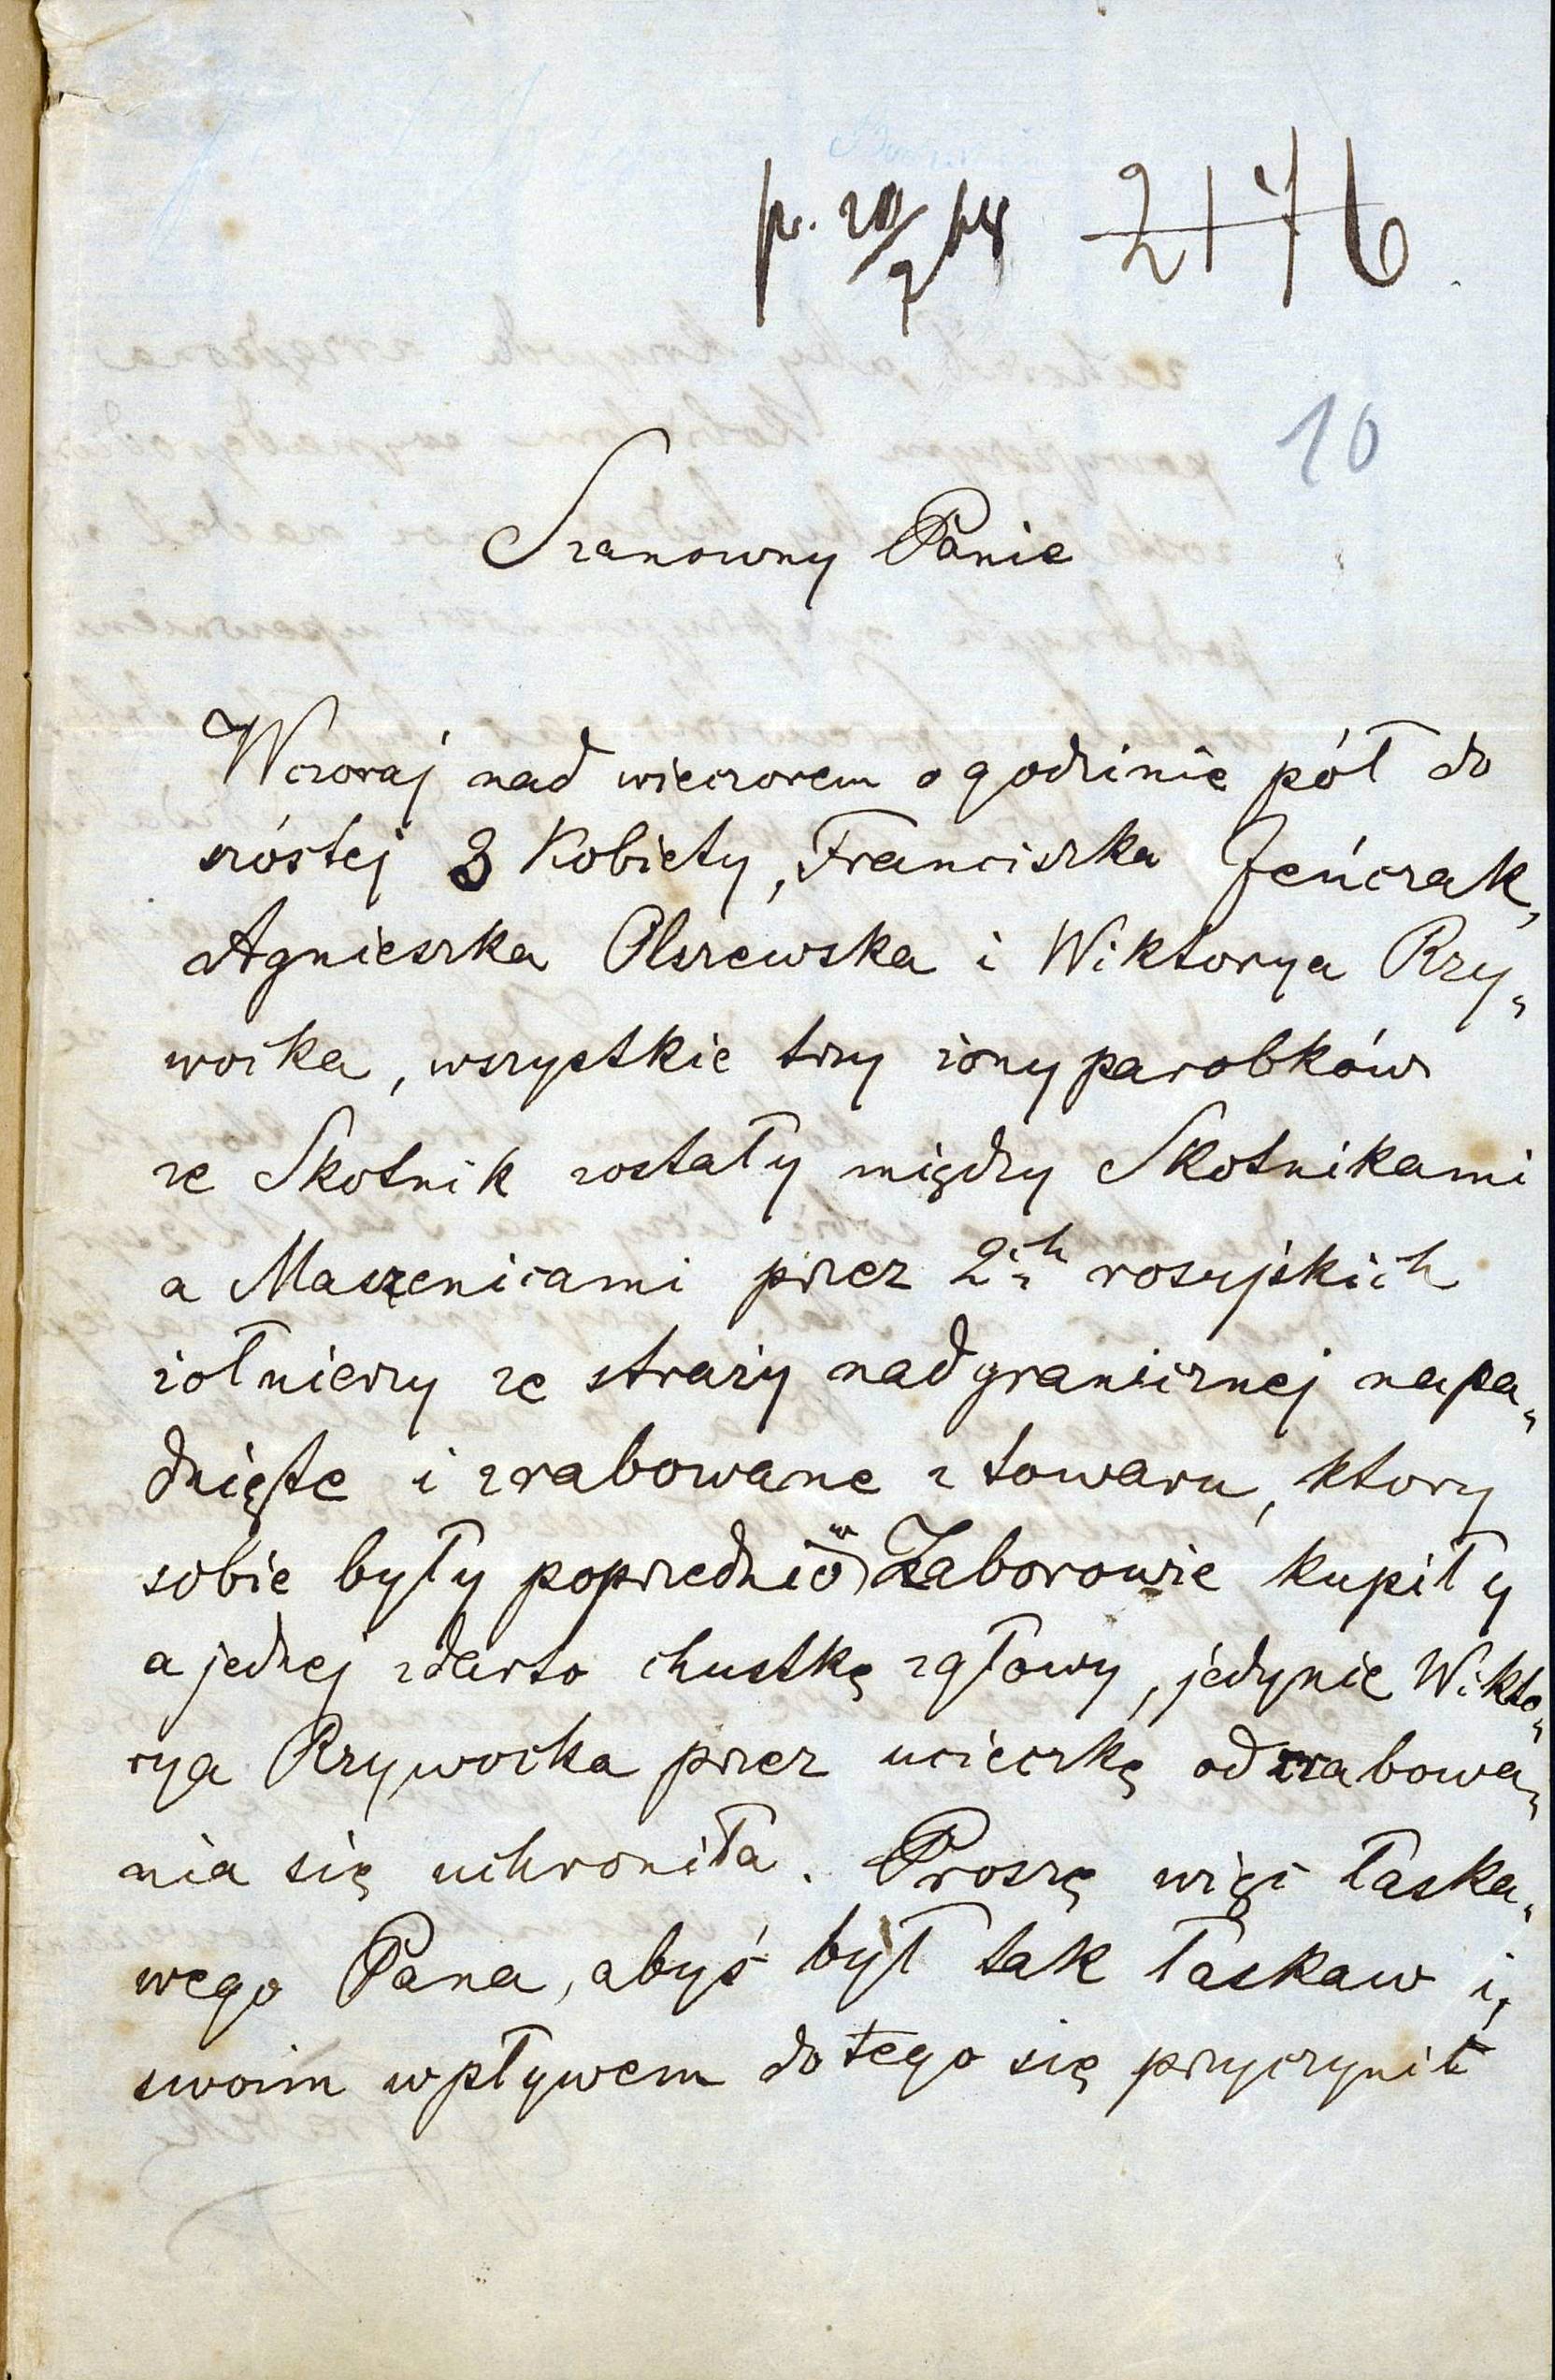 pr. 20/2 64 2176
10
Szanowny Panie
Wczoraj nad wieczorem o godzinie pół do
szóstej 3 Kobiety, Franciszka Jeńczak,
Agnieszka Olszewska i Wiktorya Rzy„
wocka, wszystkie trzy żony parobków
ze Skotnik zostały między Skotnikami
a Maszenicami przez 2ch rosyjskich
żołnierzy ze straży nadgranicznej napa„
dnięte i zrabowane z towaru, ktory
sobie były poprzednio w Zaborowie kupiły
a jednej zdarto chustkę zgłowy, jedynie Wikto„
rya Rzywocka przez ucieczkę od zrabowa„
nia się uchroniła. Proszę więc łaska„
wego Pana, abyś był tak łaskaw i,
swoim wpływem do tego się przyczynił